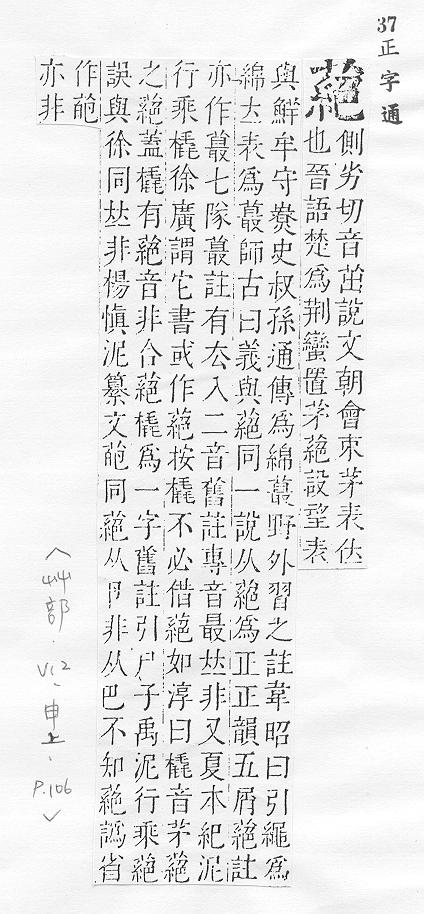 37正字通
蕝
側劣切音茁說文朝會束茅表位
也晉語楚為荆蠻置茅蕝設望表
與鮮牟守燎史叔孫通傳為綿蕞野外習之註韋昭曰引繩為
綿立表為蕞師古曰義與蕝同一說从蕝為正正韻五屑蕝註
亦作蕞七隊蕞註有去入二音舊註專音最𠀤非又夏本紀泥
行乘橇徐廣謂它書或作蕝按橇不必借蕝如淳曰橇音茅蕝
之蕝蓋橇有蕝音非合蕝橇為一字舊註引尸子禹泥行乘蕝
誤與徐同𠀤非楊慎泥纂文同蕝从卩非从巴不知蕝譌省
作
亦非
<艸部.V12.申上.P.106>